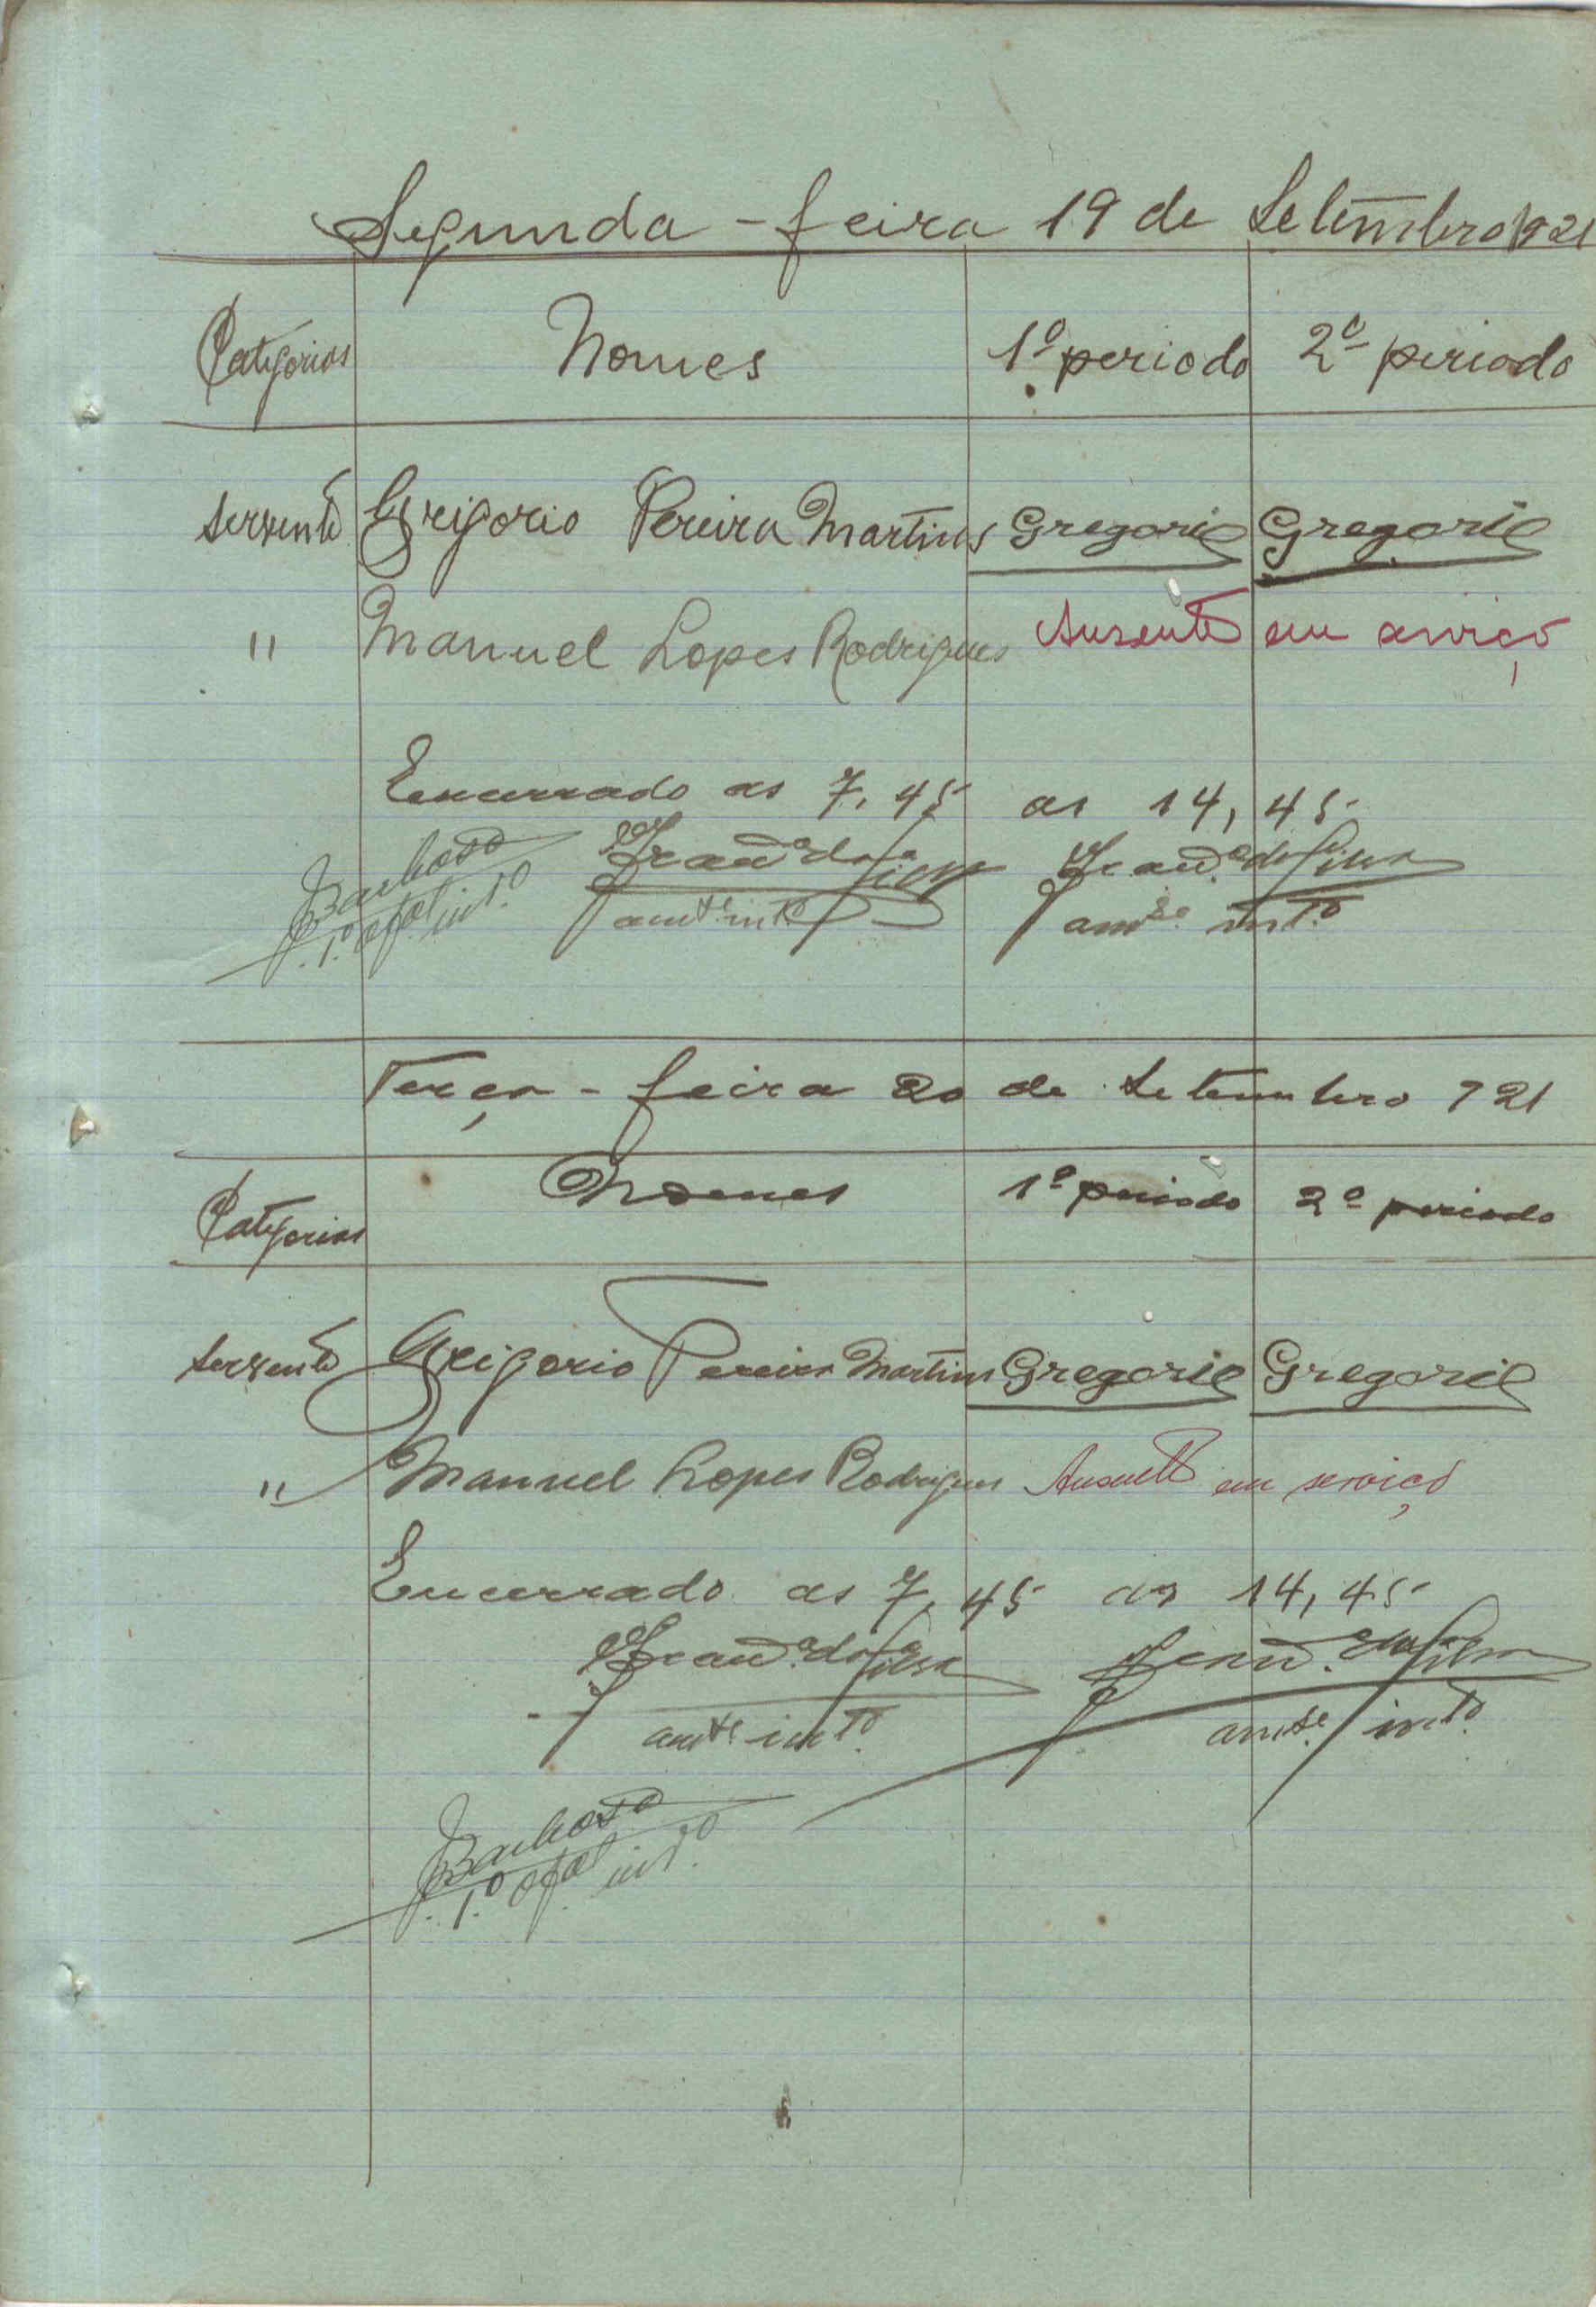 Segunda - feira 19 de Setembro 1921
Categorias Nomes 1º periodo 2º periodo
servente Grigorio Pereira Martins Gregorio Gregorio
" Manuel Lopes Rodrigues Ausente em serviço
Encerrado as 7,45 as 14,45
Barbosa
1.º ofal int.º
amte. int.º amte. int.º
Terça - feira 20 de Setembro 921
Categorias Nomes 1º periodo 2º periodo
servente Grigorio Pereira Martins Gregorio Gregorio
" Manuel Lopes Rodrigues Ausente em serviço
Encerrado as 7,45 as 14,45
amte. int.º amte. int.º
Barbosa
1.º ofal int.º